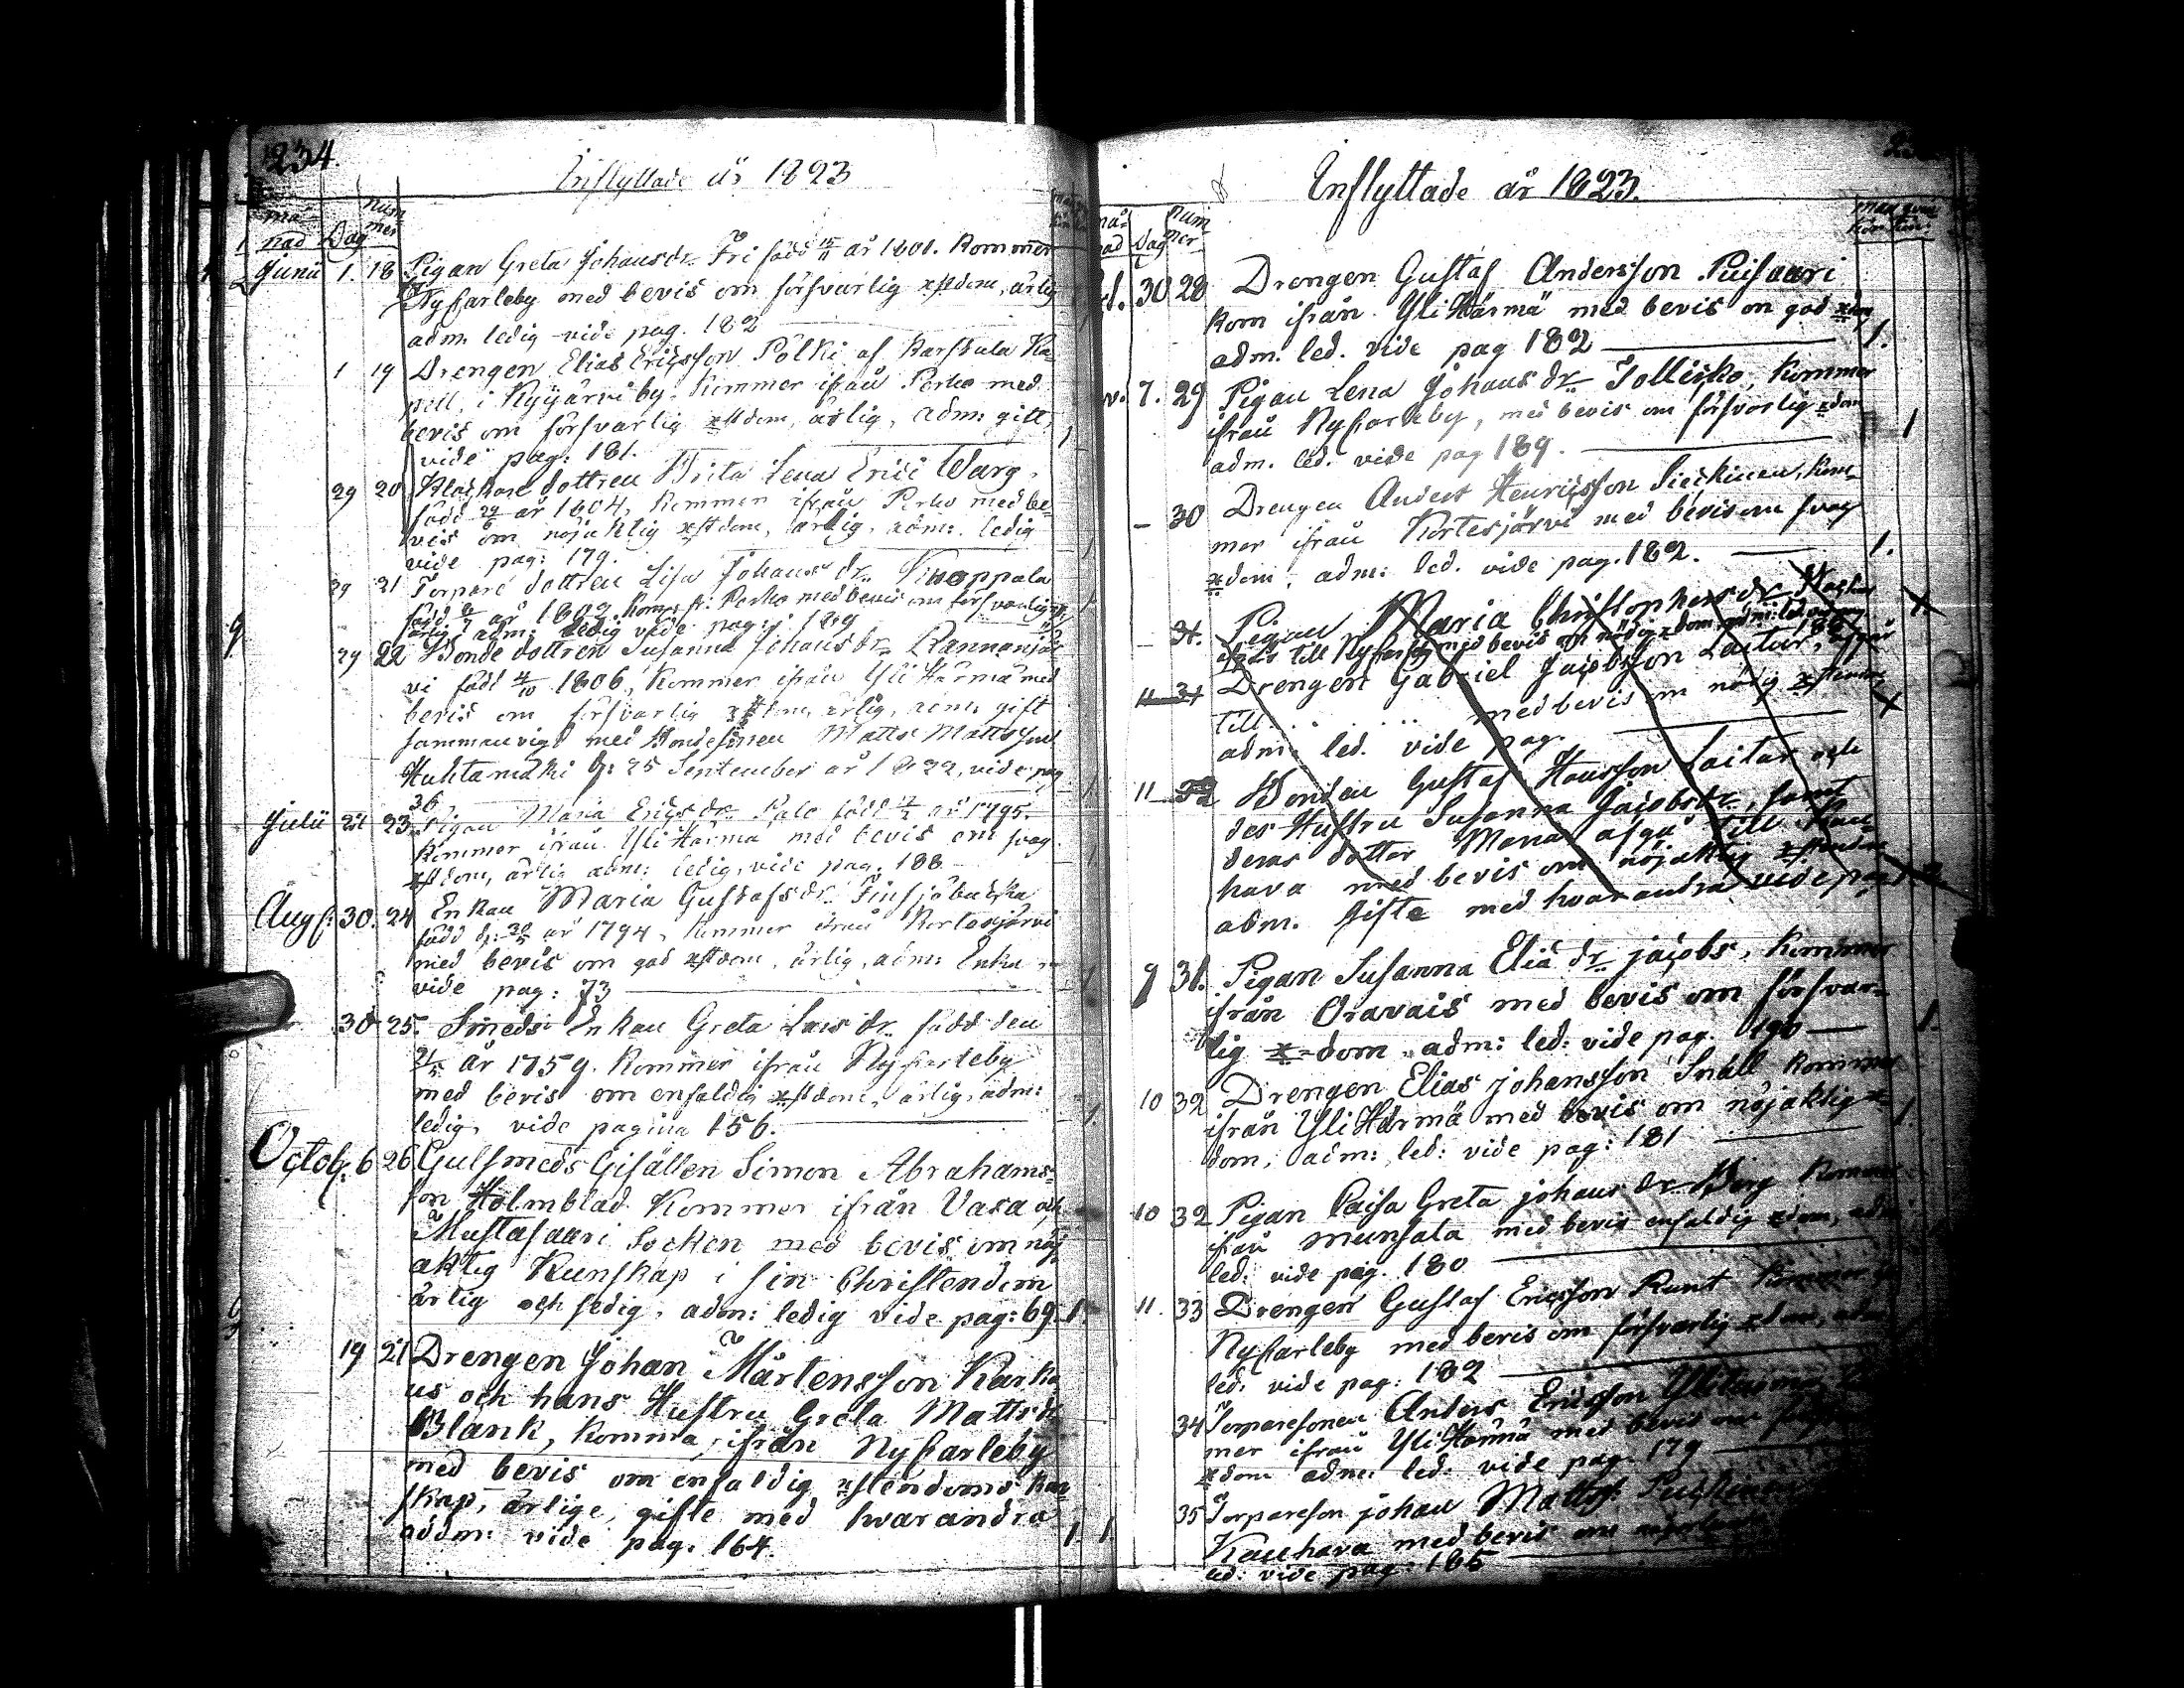 234.
Inflyttade år 1823
må-
nad Dag num
mer
Junii 1. 18 Pigan Greta Johansdr Fri född 15/11 år 1801. Kommer
Nyfarleby med bevis om försvarlig xstdom, ärlig
adm. ledig vide pag. 182
1 19 Drengen Elias Ericsson Pölki af Karstula Ka-
pell, i Kyyjärvi by. Kommer ifrån Perho med
bevis om försvarlig xstdom, ärlig, adm: gift,
vide pag: 181. 1
29 20 Klockare dottren Brita Lena Erici Warg.
född 29/6 år 1804, Kommer ifrån Perho med be-
vis om nöjaktig xstdom, ärlig, adm: ledig
vide pag: 179. 1
29 21 Torpare dottren Lisa Johans dr
född år 1802 Kom: fr: Perho med bevis om försvarlig
ärlig adm: ledig vide pag: 189
29 22 Bonde dottren Susanna Johans dr Rannanjär-
vi född 4/10 1806, Kommer ifrån Yli Härmä med
bevis om försvarlig xstdom, ärlig, adm: gift
sammanvigd med Bondesonen Matts Mattsson
Huhtamäki d: 25 September år 1822, vide pag
36 1
Julii 23. Pigan Maria Ericsdr Palo född år 1795.
Kommer ifrån Yli Härmä med bevis om svag
xstdom, ärlig adm: ledig, vide pag. 188 1
Augs: 30. 24 Enkan Maria Gustafsdr
född d: 30/5 år 1794, Kommer ifrån Kortesjärvi
med bevis om god xstdom, ärlig, adm: Enka
vide pag: 73 1
30 25. Smeds Enkan Greta Lars dr född den
år 1759. Kommer ifrån Nyfarleby
med bevis om enfaldig xstdom, ärlig, adm:
ledig, vide pagina 156. 1.
Octob: 6 26 Gulsmeds Gisällen Simon Abrahams-
son Holmblad Kommer ifrån Vasa och
Mustasaari Socken med bevis om nöj
aktig Kunskap i sin Christendom
ärlig och sedig, adm: ledig vide pag: 69. 1.
19 27 Drengen Johan Mårtensson Karka
us och hans Hustru Greta Matts dr
Blank, Komma, ifrån Nyfarleby
med bevis om enfaldig xstendoms kun
skap, ärlige, gifte med hwarandra
addm: vide pag. 164. 1. 1.
Inflyttade år 1823.
må-
nad Dag num
mer
30 28 Drengen Gustaf Andersson Puisaari
Kom ifrån Yli Härmä med bevis om god xdom
adm. led. vide pag 182 1.
7. 29 Pigan Lena Johans dr Jollisko, Kommer
ifrån Nyfarleby, med bevis om försvarlig xdom
adm. led. vide pag 189. 1
_ 30 Drengen Anders Henricsson Kom-
mer ifrån Kortesjärvi med bevis om svag
xdom, adm: led. vide pag. 182. 1.
_ 31. Pigan Maria Christophersdr
till Nyfarleby med bevis om nödig xdom, adm: led vid pag
11 31 Drengen Gabriel Jacobsson Laitar, afgår
till . . . . . . med bevis om nödig xstendom
adm: led. vide pag.
11 32 Bonden Gustaf Hansson Laitar och
des Hustru Susanna Jacobsdr, samt
deras dotter Maria afgå till Kau-
hava med bevis om nöjaktig xstendom
adm. Gifte med hvarandra vide pag
9 31. Pigan Susanna Elia dr Jacobs, Kommer
ifrån Oravais med bevis om försvar-
lig x-dom adm: led: vide pag. 190 1.
10 32 Drengen Elias Johansson Snäll Kommer
ifrån Yli Härmä med bevis om nöjaktig x-
dom, adm: led: vide pag: 181 1.
10 32 Pigan Caisa Greta Johans dr Berg Kommer
ifrån Munsala med bevis enfaldig xdom, adm
led: vide pag. 180
11. 33 Drengen Gustaf Ericsson Runt Kommer
Nyfarleby med bevis om försvarlig xdom, adm
led: vide pag: 182
34 Torparesonen Anders Ericsson
mer ifrån Yli Härmä med bevis om
xdom adm: led: vide pag. 179
35 Torpareson Johan Matts:
Kauhava med bevis om
led. vide pag: 185